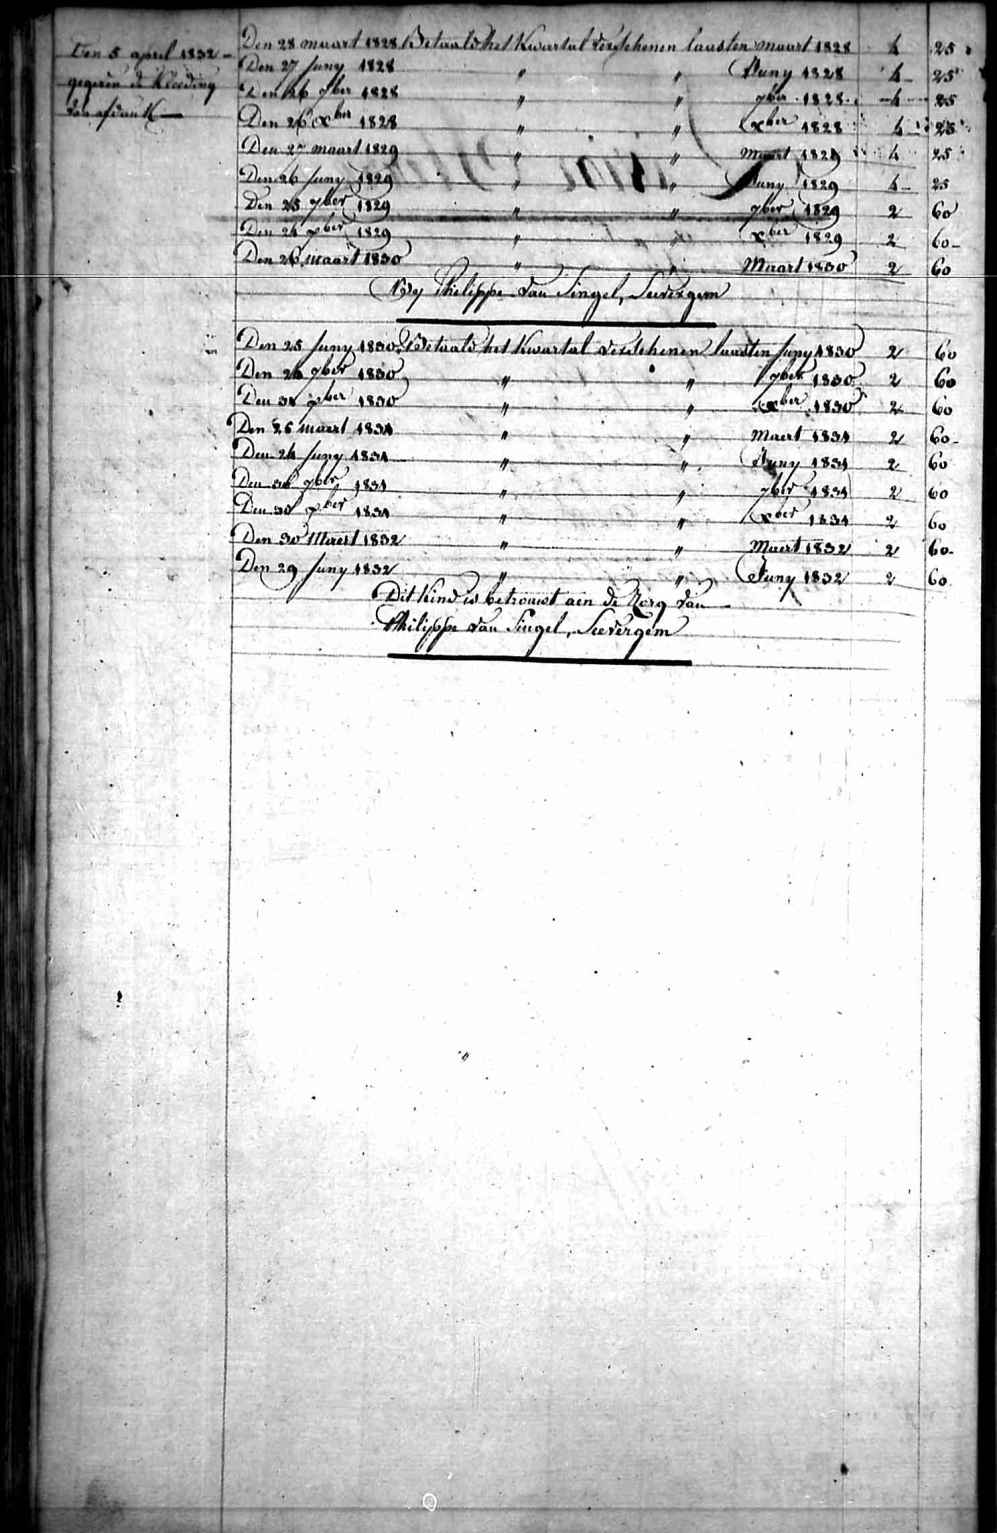 Den 5 april 1832
gegeven de Kleeding
van afdank
Den 28 maart 1828 Betaald het Kwartal verschenen laasten maart 1828 4 25
Den 27 Juny 1828 " " Juny 1828 4 25
Den 26 7ber 1828 " " 7ber 1828 4 25
Den 26 Xber 1828 " " Xber 1828 4 25
Den 27 maart 1829 " " Maart 1829 4 25
Den 26 Juny 1829 " " Juny 1829 4 25
Den 25 7ber 1829 " " 7ber 1829 2 60
Den 24 Xber 1829 " " Xber 1829 2 60
Den 26 maart 1830 " " Maart 1830 2 60
By Philippe Van Singel, Seevergem
Den 25 Juny 1830 Betaald het Kwartal verschenen laasten Juny 1830 2 60
Den 7ber 1830 " " 7ber 1830 2 60
Den 31 Xber 1830 " " Xber 1830 2 60
Den 26 maert 1831 " " Maert 1831 2 60
Den 24 Juny 1831 " " Juny 1831 2 60
Den 30 7ber 1831 " " 7ber 1831 2 60
Den 30 Xber 1831 " " Xber 1831 2 60
Den 30 Maert 1832 " " Maert 1832 2 60
Den 29 Juny 1832 " " Juny 1832 2 60
Dit Kind is betrouwt aen de Zorg van
Philippe van Singel, Seevergem